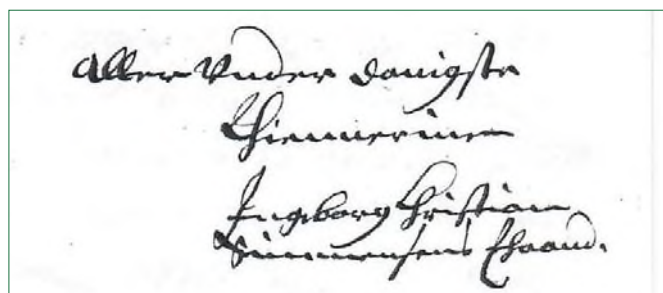 Aller Under danigste
Thiennerinne
Ingeborg Christian
Simmensens Ehaand.